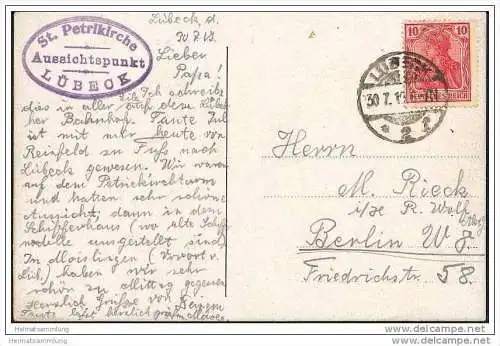 St. Petrikirche
Aussichtspunkt
LÜBECK
Lübeck, d.
30.7.12.
Lieber
Papa!
Eile Ich schreibe
dies in aller auf dem Lübek
ker Bahnhof. Tante Jul
ist mit mir heute von
Reinfeld zu Fuss nach
Lübeck gewesen. Wir waren
auf dem Petrikirchturm
und hatten sehr schöne
Aussicht; dann in dem
Schifferhaus (wo alte Schiff
modelle ausgestellt sind.
In Moislingen (Vorort v.
Lüb.) haben wir sehr
schön zu Mittag gegessen
Herzlich Grüsse von
Tante herzlich
10 10
DEUTSCHES REICH
LÜBECK
30 7.12
* 2 f
Herrn
M. Rieck
i/H R. Wolf
Berlin W 8.
Friedrichstr 58.
Heimatsammlung
Heimatsammlung
http://www.heimatsammlung.de
http://www.heimatsammlung.de